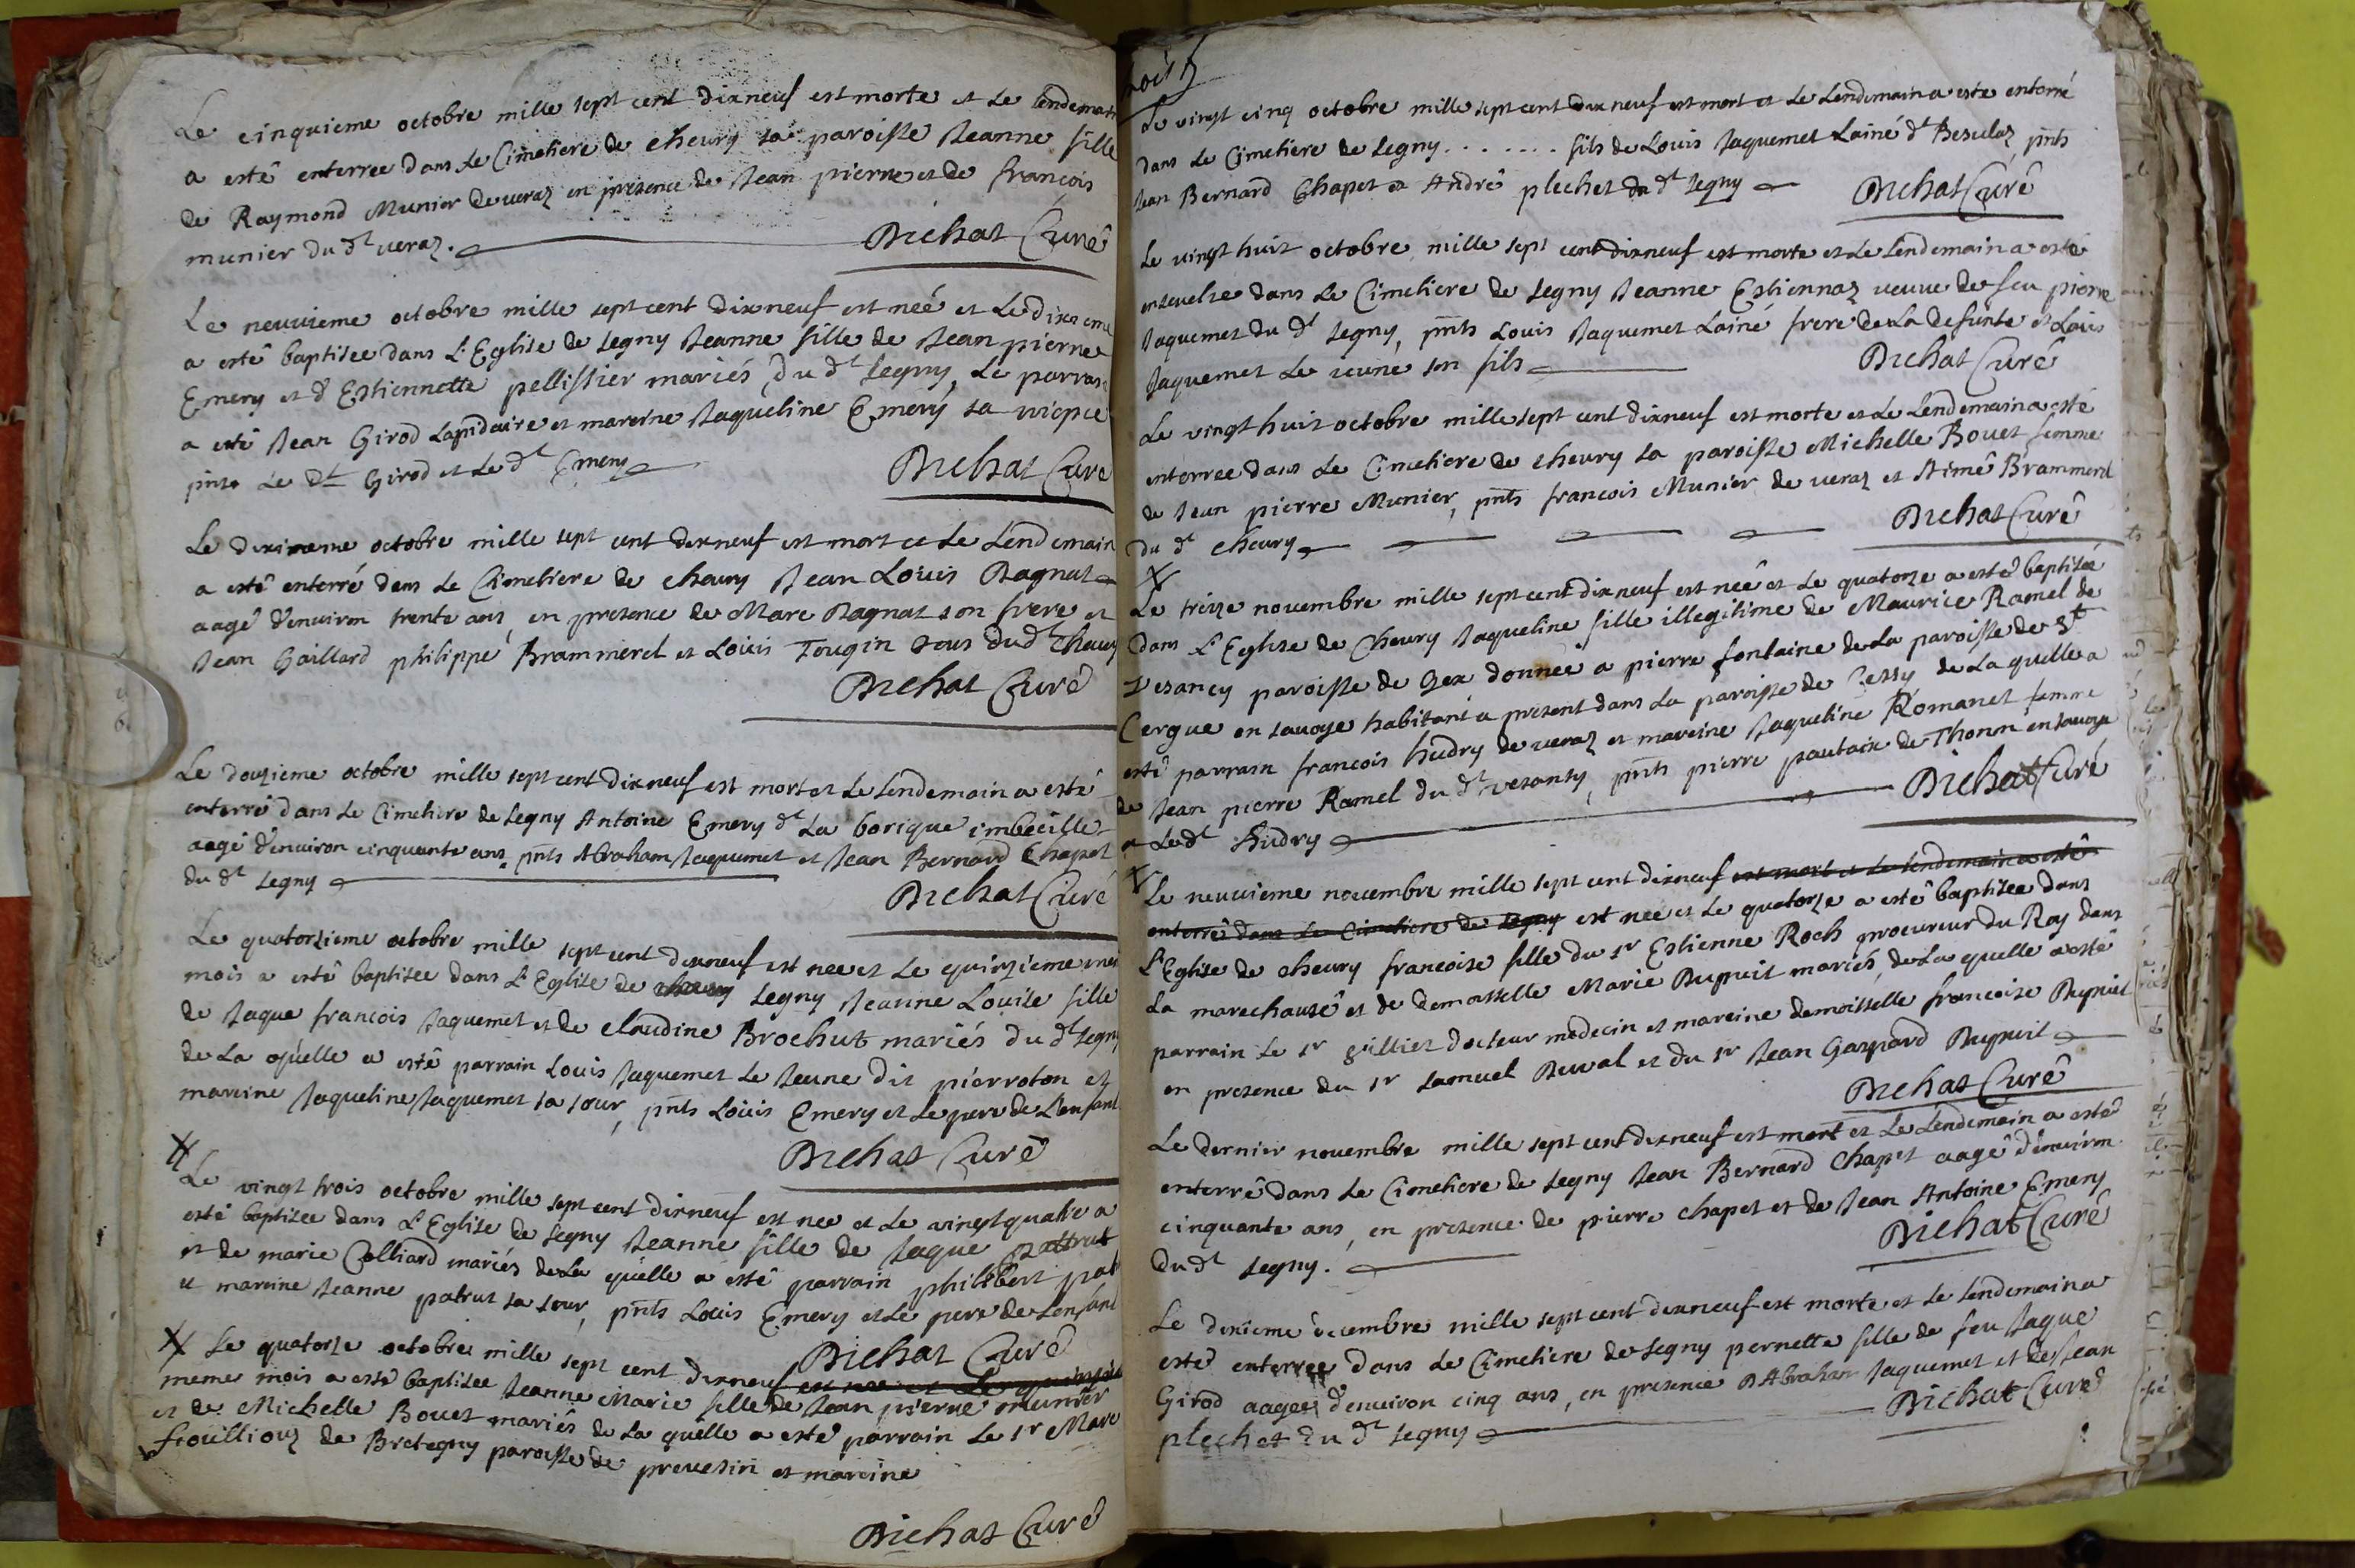 Le cinquieme octobre mille sept cent dixneuf est morte et Le lendemain
a estê enterree dans Le Cimetiere de cheury sa paroisse Jeanne fille
de Raymond Munier de ueraz en presence de Jean pierre et de francois
munier du dt ueraz.
Bichat Curê
Le neuuieme octobre mille sept cent dixneuf est neé et Le dixieme
a estê baptisee dans L'Eglise de segny Jeanne fille de Jean pierre
Emery et d'Estiennette pellissier mariés du dt segny, Le parrain
a estê Jean Girod Lapidaire et mareine Jaqueline Emery sa niepce
pnts Le dt Girod et Le dt Emery
Bichat Curé
Le dixieme octobre mille sept cent dixneuf est mort et Le Lendemain
a estê enterré dans Le Cimetiere de cheury Jean Louis Bagnat
aagê d'enuiron trente ans, en presence de Marc Bagnat son frere et
Jean Gaillard philippe Brammerel et Louis Tougin tous du dt cheury
Bichat Curê
Le douzieme octobre mille sept cent dixneuf est mort et Le Lendemain a estê
enterré dans Le Cimetiere de segny Antoine Emery dt La borique imbecille
aagé d'enuiron cinquante ans, pnts Abraham Jaquemet et Jean Bernard Chapet
du dt segny
Bichat Curé
Le quatorzieme octobre mille sept cent dixneuf est nee et Le quinzieme
mois a estê baptisee dans L'Eglise de cheury segny Jeanne Louise fille
de Jaque francois Jaquemet et de claudine Brochut mariés du dt segny
de La quelle a estê parrain Louis Jaquemet Le Jeune dit pierroton et
mareine Jaqueline Jaquemet sa sœur, pnts Louis Emery et Le pere de L'enfant
Bichat Curê
X
Le vingt trois octobre mille sept cent dixneuf est nee et Le vingt quatre a
estê baptisee dans L'Eglise de segny Jeanne fille de Jaque pattrut
et de marie Colliard mariés de La quelle a estê parrain philibert pat
et mareine Jeanne patrut sa sœur, pnts Louis Emery et Le pere de L'enfant
Bichat Curê
X Le quatorze octobre mille sept cent dixneuf est nee et Le quinzie
meme mois a estê baptisee Jeanne Marie fille de Jean pierre munier
et de Michelle Bouet mariés de La quelle a estê parrain Le sr Marc
frouillouz de Bretegny paroisse de preuesin et mareine
Bichat Curê
Le vingt cinq octobre mille sept cent dixneuf est mort et Le Lendemain a este enterré
dans Le Cimetiere de segny . . . . . . . fils de Louis Jaquemet Lainé dt Besulaz pnts
Jean Bernard Chapet et Andrê plechet du dt segny
Bichat Curê
Le vingt huit octobre mille sept cent dixneuf est morte et Le Lendemain a estê
enseuelie dans Le Cimetiere de segny Jeanne Estiennaz ueuue de feu pierre
Jaquemet du dt segny, pnts Louis Jaquemet Lainé frere de La defunte et Louis
Jaquemet Le ieune son fils
Bichat Curê
Le vingt huit octobre mille sept cent dixneuf est morte et Le Lendemain a estê
enterree dans Le Cimetiere de cheury sa paroisse Michelle Bouet femme
de Jean pierre Munier, pnts francois Munier de ueraz et Aimê Brammerel
du dt cheury
Bichat Curê
X
Le treize nouembre mille sept cent dixneuf est neê et Le quatorze a estê baptisée
dans L'Eglise de Cheury Jaqueline fille illegitime de Maurice Ramel de
Vesancy paroisse de Gex donnee a pierre fontaine de La paroisse de St
Cergue en sauoye habitant a present dans La paroisse de Cessy de La quelle a
estê parrain francois hudry de ueraz et mareine Jaqueline Romanet femme
de Jean pierre Ramel du dt vesancy, pnts pierre pautaix de Thonon en sauoye
et Le dt hudry
Bichat Curé
X
Le neuuieme nouembre mille sept cent dixneuf est mort et Le Lendemain a estê
enterrê dans Le Cimetiere de segny est nee et Le quatorze a estê baptisee dans
L'Eglise de cheury francoise fille du sr Estienne Roch procureur du Roy dans
La marechausê et de demoiselle Marie Dupuit mariés, de La quelle a estê
parrain Le sr Gilliet docteur medecin et mareine demoiselle francoise Dupuit
en presence du sr samuel Duval et du sr Jean Gaspard Dupuit
Bichat Curê
Le dernier nouembre mille sept cent dixneuf est mort et Le Lendemain a estê
enterrê dans Le Cimetiere de segny Jean Bernard Chapet aagê d'enuiron
cinquante ans, en presence de pierre chapet et de Jean Antoine Emery
du dt segny.
Bichat Curê
Le dixieme decembre mille sept cent dixneuf est morte et Le Lendemain a
estê enterree dans Le Cimetiere de segny pernette fille de feu Jaque
Girod aagee d'enuiron cinq ans, en presence d'Abraham Jaquemet et de Jean
plechet du dt segny
Bichat Curê